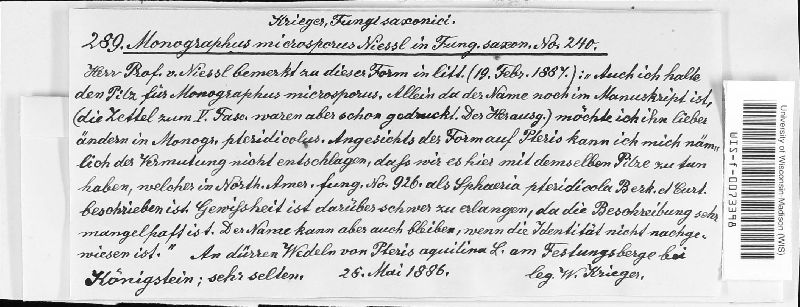 Krieger, Fungi saxonici.
289. Monographus microsporus Niessl in Fung. saxon. No. 240.
Herr Prof. v. Niessl bemerkt zu dieser Form in litt. (19. Febr. 1887.): „Auch ich halte
den Pilz für Monographus microsporus. Allein da der Name noch im Manuskript ist,
(die Zettel zum V. Fasc. waren aber schon gedruckt. Der Herausg.) möchte ich ihn lieber
ändern in Monogr. pteridicolus. Angesichts der Form auf Pteris kann ich mich näm-
lich der Vermutung nicht entschlagen, dass wir es hier mit demselben Pilze zu tun
haben, welcher in North. Amer. fung. No. 926. als Sphaeria pteridicola Berk. et Curt.
beschrieben ist. Gewißheit ist darüber schwer zu erlangen, da die Beschreibung sehr
mangelhaft ist. Der Name kann aber auch bleiben, wenn die Identität nicht nachge-
wiesen ist."
An dürren Wedeln von Pteris aquilina L. am Festungsberge bei
Königstein; sehr selten. 26. Mai 1886. leg. W. Krieger.
University of Wisconsin Madison (WIS)
WIS-f-0073398